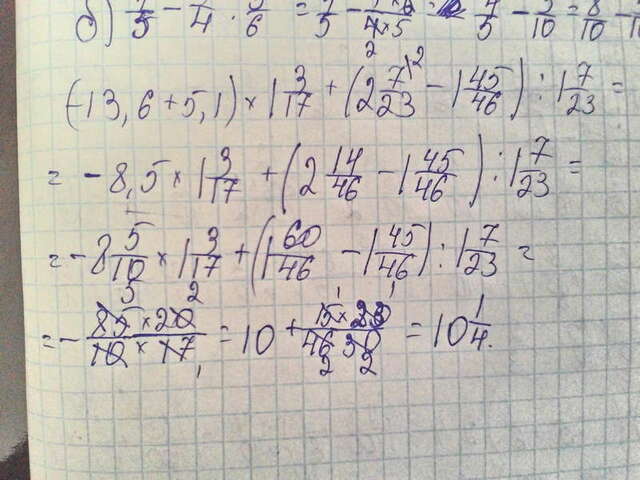 б) 7/5 - 1/4 · 5/6 = 7/5 - = 4/5 - 3/10 = 8/10 -
(-13,6+5,1)×1 3/17 + (2 7/23 - 1 45/46) : 1 7/23 =
= -8,5×1 3/17 + (2 14/46 - 1 45/46) : 1 7/23 =
= -8 5/10 × 1 3/17 + (1 60/46 - 1 45/46) : 1 7/23 =
= - 85×20/10×17 = 10 + 15×23/46 30 = 10 1/4.